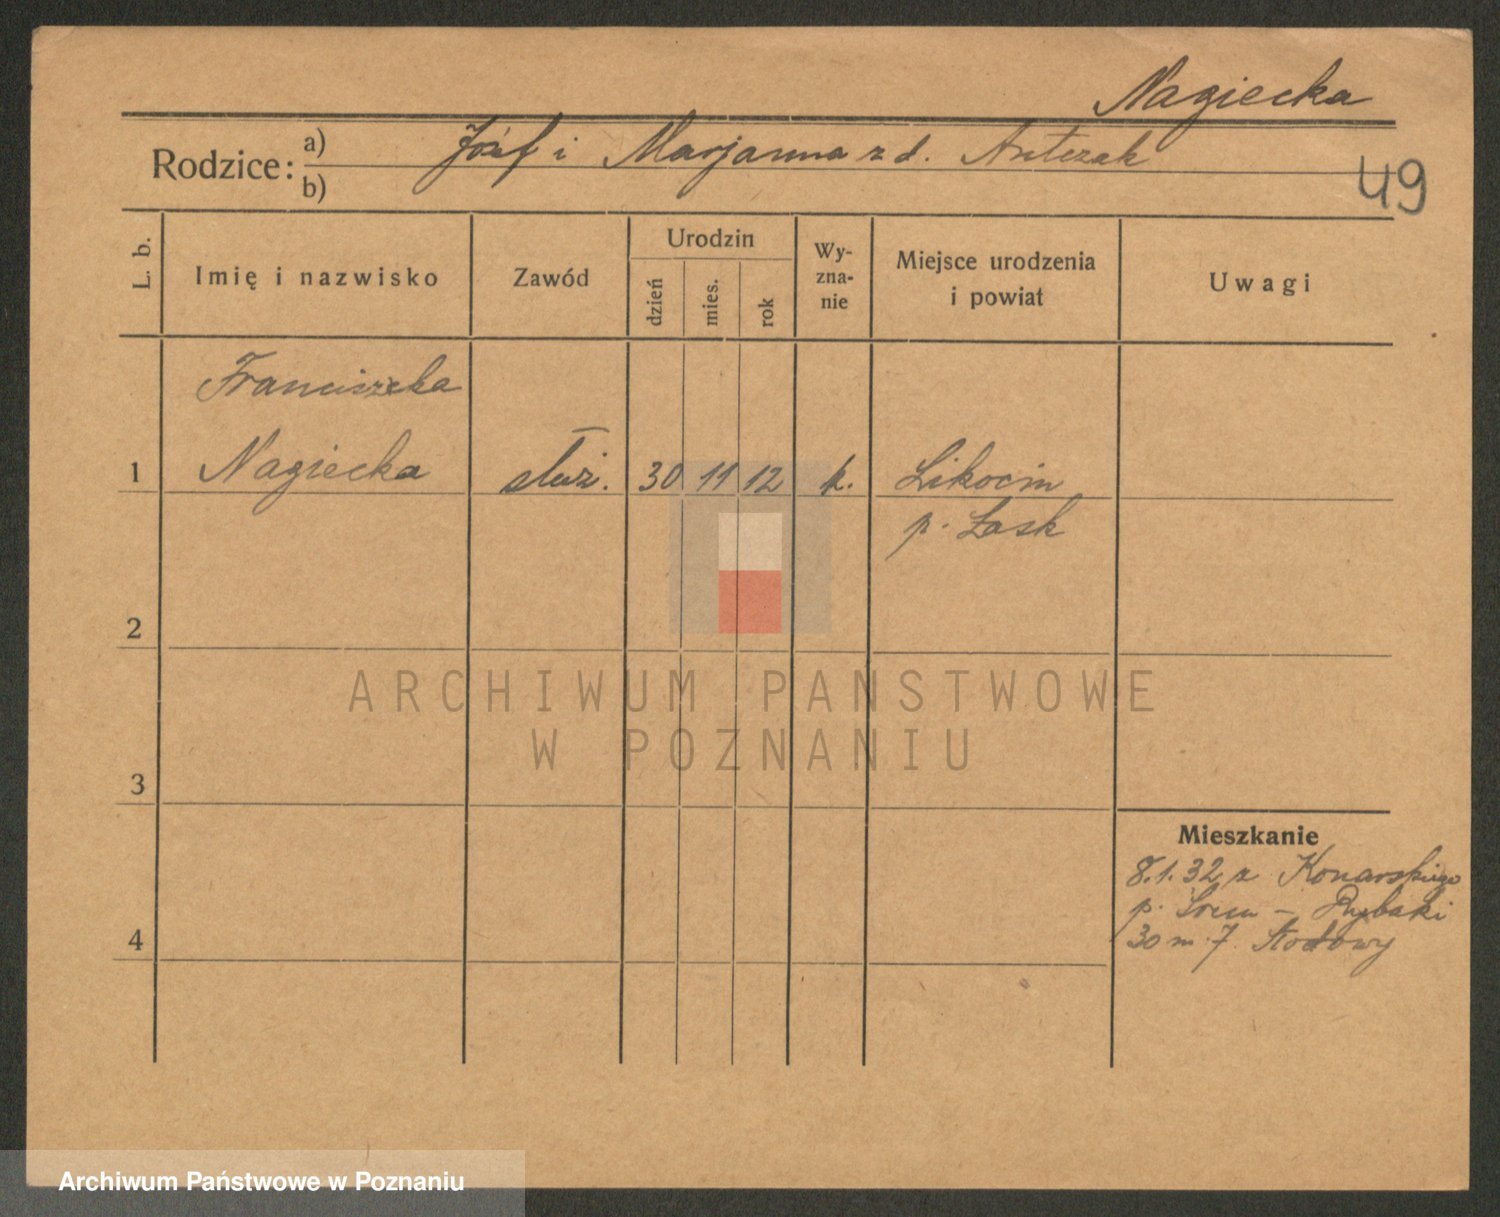 Nagiecka
Rodzice: a) Józef i Marjanna z d. Antczak
b)
49
L. b. Imię i nazwisko Zawód Urodzin dzień mies. rok Wy-zna-nie Miejsce urodzenia i powiat Uwagi
Franciszka
1 Nagiecka służ. 30 11 12 k. Likocin
p. Łask
2
ARCHIWUM PANSTWOWE
W POZNANIU
3
Mieszkanie
8.1.32 z Konarskiego
p. Śrem – Rybaki
4
30 m. 7
Archiwum Państwowe w Poznaniu